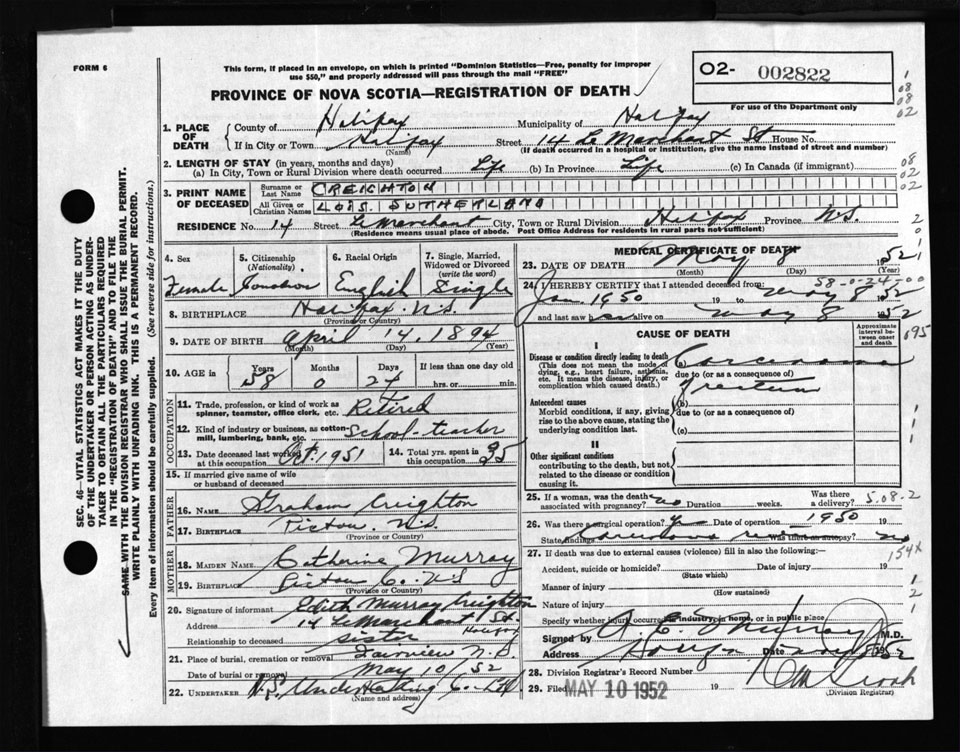 FORM 6
This form, if placed in an envelope, on which is printed "Dominion Statistics—Free, penalty for improper
use $50," and properly addressed will pass through the mail "FREE"
O2- 002822
For use of the Department only
PROVINCE OF NOVA SCOTIA—REGISTRATION OF DEATH
1. PLACE OF DEATH
County of Halifax Municipality of Halifax
If in City or Town Halifax Street 14 Le Marchant St House No.
(Name) (If death occurred in a hospital or institution, give the name instead of street and number)
2. LENGTH OF STAY (in years, months and days)
(a) In City, Town or Rural Division where death occurred Life (b) In Province Life (c) In Canada (if immigrant)
3. PRINT NAME OF DECEASED
Surname or Last Name CREIGHTON
All Given or Christian Names LOIS SUTHERLAND
RESIDENCE No. 14 Street Le Marchant City, Town or Rural Division Halifax Province N.S.
(Residence means usual place of abode. Post Office Address for residents in rural parts not sufficient)
4. Sex Female
5. Citizenship (Nationality) Canadian
6. Racial Origin English
7. Single, Married, Widowed or Divorced (write the word) Single
8. BIRTHPLACE Halifax N.S.
(Province or Country)
9. DATE OF BIRTH April 14, 1894
(Month) (Day) (Year)
10. AGE in Years 58 Months 0 Days 24 If less than one day old hrs. or min.
OCCUPATION
11. Trade, profession, or kind of work as spinner, teamster, office clerk, etc. Retired
12. Kind of industry or business, as cotton-mill, lumbering, bank, etc. School-teacher
13. Date deceased last worked at this occupation Oct. 1951
14. Total yrs. spent in this occupation 35
15. If married give name of wife or husband of deceased
FATHER
16. NAME Graham Creighton
17. BIRTHPLACE Pictou, N.S.
(Province or Country)
MOTHER
18. MAIDEN NAME Catherine Murray
19. BIRTHPLACE Pictou Co. N.S
(Province or Country)
20. Signature of informant Edith Murray Creighton
Address 14 Le Marchant St. Halifax
Relationship to deceased sister
21. Place of burial, cremation or removal Fairview N.S.
Date of burial or removal May 10/52
22. UNDERTAKER N.S. Undertaking Co. Ltd
(Name and address)
MEDICAL CERTIFICATE OF DEATH
23. DATE OF DEATH May 8 1952
(Month) (Day) (Year)
58-0-24-00
24. I HEREBY CERTIFY that I attended deceased from:
Jan 1950 19 to May 8 1952
and last saw her alive on May 8 1952
CAUSE OF DEATH
Approximate interval between onset and death
I
Disease or condition directly leading to death
(This does not mean the mode of dying, e.g., heart failure, asthenia, etc. It means the disease, injury, or complication which caused death.)
(a) Carcinoma
due to (or as a consequence of)
rectum
Antecedent causes
Morbid conditions, if any, giving rise to the above cause, stating the underlying condition last.
(b)
due to (or as a consequence of)
(c)
II
Other significant conditions
contributing to the death, but not related to the disease or condition causing it.
25. If a woman, was the death associated with pregnancy? no Duration weeks. Was there a delivery?
5.08.2
26. Was there a surgical operation? Date of operation 1950 19
State findings Carcinoma Was there an autopsy? no
27. If death was due to external causes (violence) fill in also the following:— 154x
Accident, suicide or homicide? Date of injury 19
(State which)
Manner of injury
(How sustained)
Nature of injury
Specify whether injury occurred in industry, in home, or in public place
Signed by M.D.
Address Date May 8 1952
28. Division Registrar's Record Number
29. Filed MAY 10 1952 19
(Division Registrar)
SEC. 46—VITAL STATISTICS ACT MAKES IT THE DUTY
OF THE UNDERTAKER OR PERSON ACTING AS UNDER-
TAKER TO OBTAIN ALL THE PARTICULARS REQUIRED
IN THE "REGISTRATION OF DEATH" AND TO FILE THE
SAME WITH THE DIVISION REGISTRAR WHO SHALL ISSUE THE BURIAL PERMIT.
WRITE PLAINLY WITH UNFADING INK. THIS IS A PERMANENT RECORD.
Every item of information should be carefully supplied. (See reverse side for instructions.)